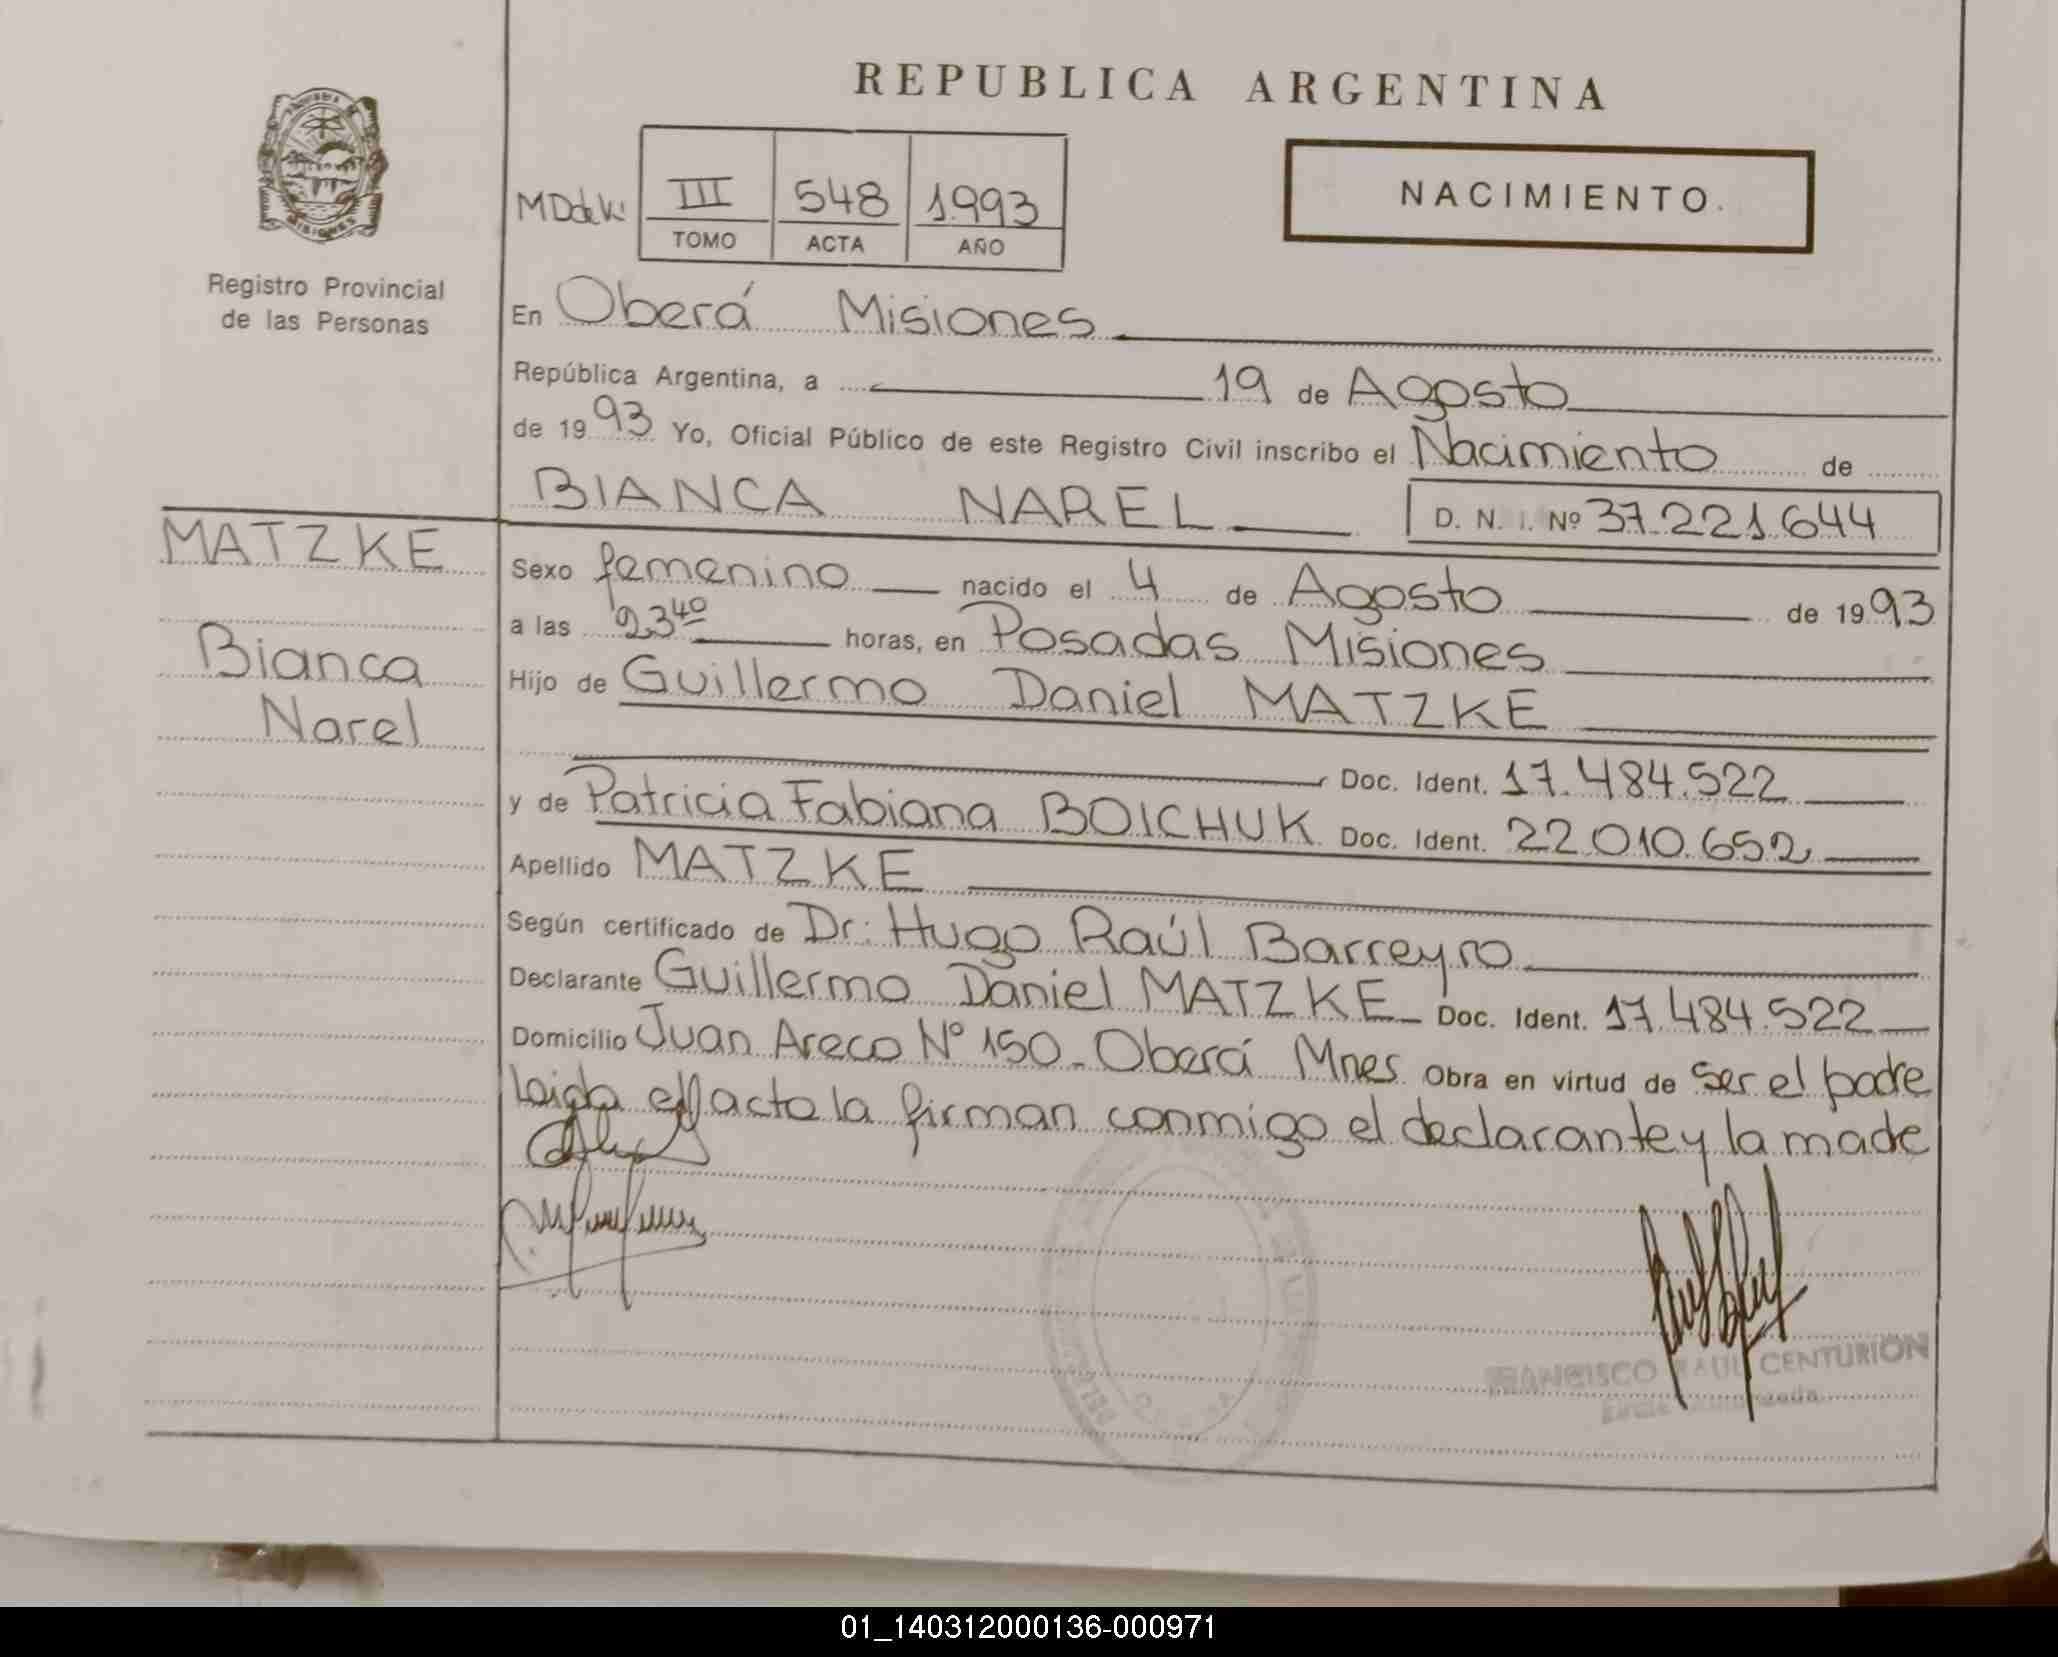 REPUBLICA ARGENTINA
NACIMIENTO.
MDdeK.
III 548 1993
TOMO ACTA AÑO
Registro Provincial
de las Personas
En Oberá Misiones
República Argentina, a 19 de Agosto
de 1993 Yo, Oficial Público de este Registro Civil inscribo el Nacimiento de
BIANCA NAREL D. N. I. Nº 37.221.644
MATZKE
Bianca
Narel
Sexo femenino nacido el 4 de Agosto de 1993
a las 23 40 horas, en Posadas Misiones
Hijo de Guillermo Daniel MATZKE
Doc. Ident. 17.484.522
y de Patricia Fabiana BOICHUK Doc. Ident. 22.010.652
Apellido MATZKE
Según certificado de Dr: Hugo Raúl Barreyro
Declarante Guillermo Daniel MATZKE Doc. Ident. 17.484.522
Domicilio Juan Areco Nº 150 - Oberá Mnes Obra en virtud de ser el padre
Leida el acta la firman conmigo el declarante y la madre
FRANCISCO RAUL CENTURION
01_140312000136-000971